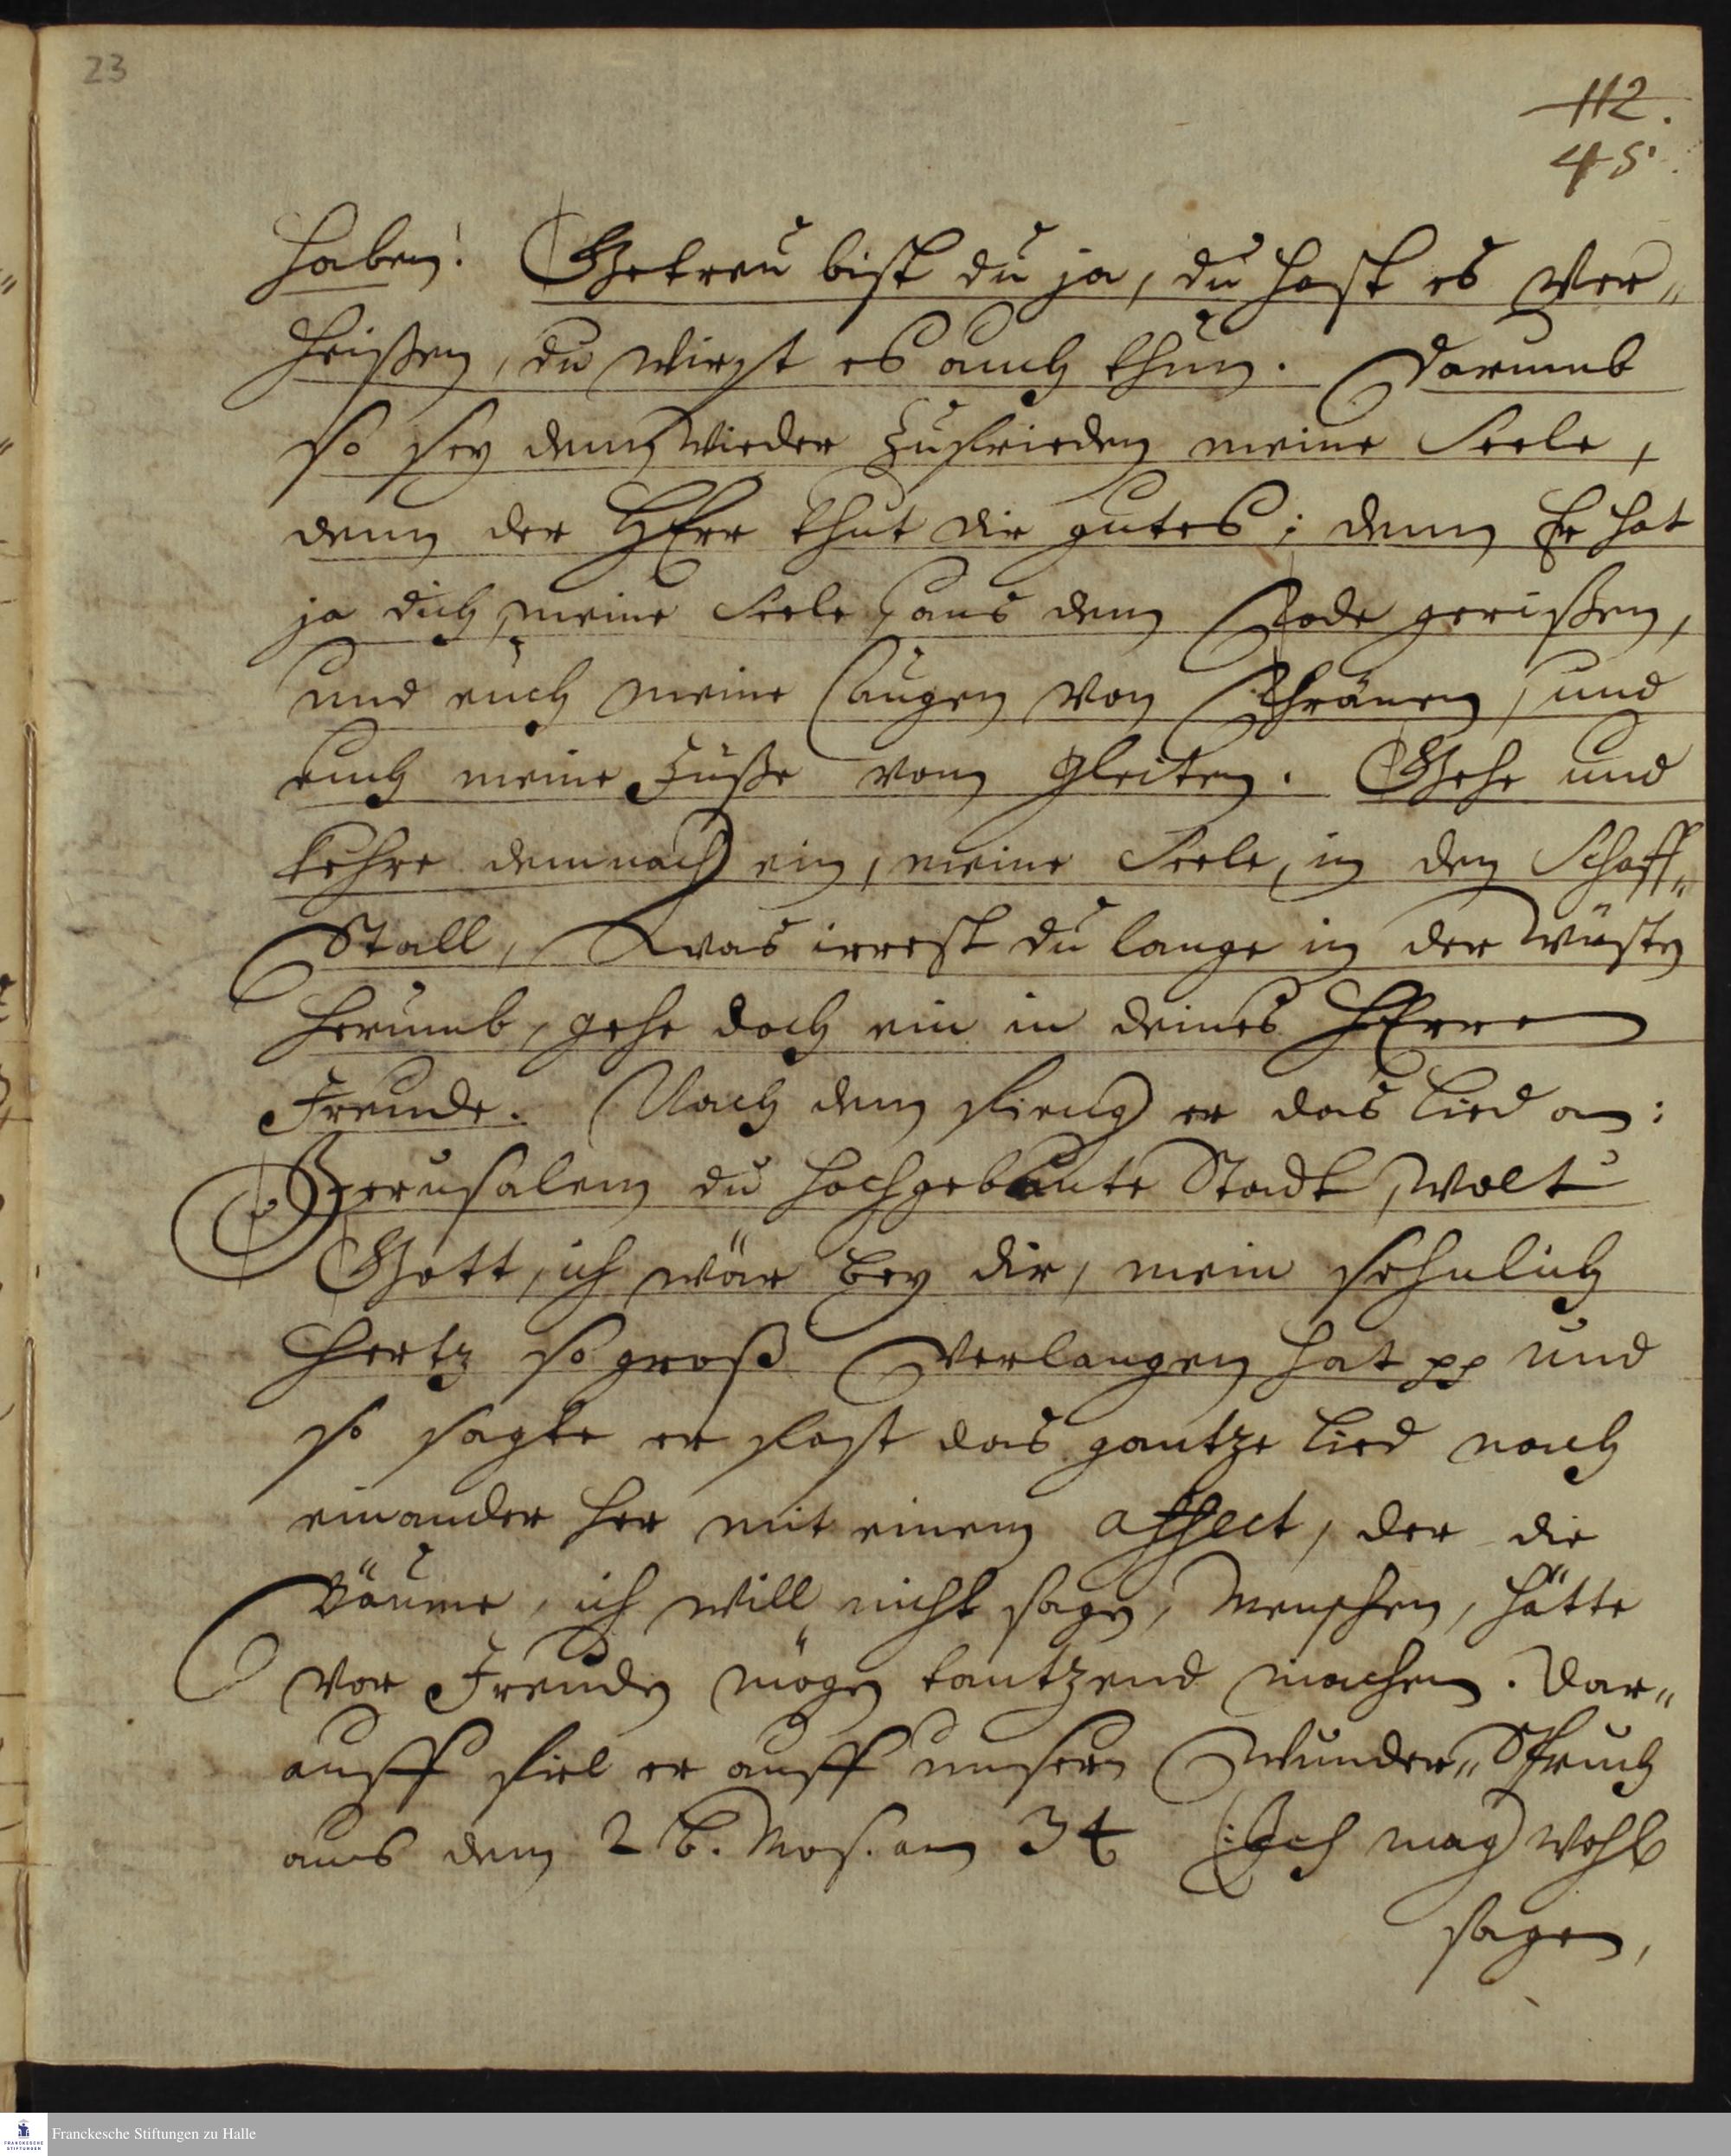 23
112.
45.
haben! Getreu bist du ja, du hast es ver„
heißen, du wirst es auch thun. Darumb
so sey denn wieder zufrieden meine Seele,
denn der HErr thut dir gutes; denn Er hat
ja dich, meine Seele, aus dem Tode gerißen,
und euch meine Augen von Thränen, und
euch meine Füße vom Gleiten. Gehe und
kehre demnach ein, meine Seele, in den Schaff„
Stall, was irrest du lange in der Wüsten
herumb, gehe doch ein in deines HErren
Freude. Nach dem fieng er das Lied an:
Jerusalem du hochgebaute Stadt, wolt
Gott, ich wär bey dir, mein sehnlich
Hertz so groß Verlangen hat pp und
so sagte er fast das gantze Lied nach
einander her mit einem affect, der die
Bäume, ich will nicht sagen, Menschen, hätte
vor Freuden mögen tantzend machen. Dar„
auff fiel er auff unsern Wunder„Spruch
aus dem 2 B. Mos. am 34 (: Ich mag wohl
sagen,
Franckesche Stiftungen zu Halle